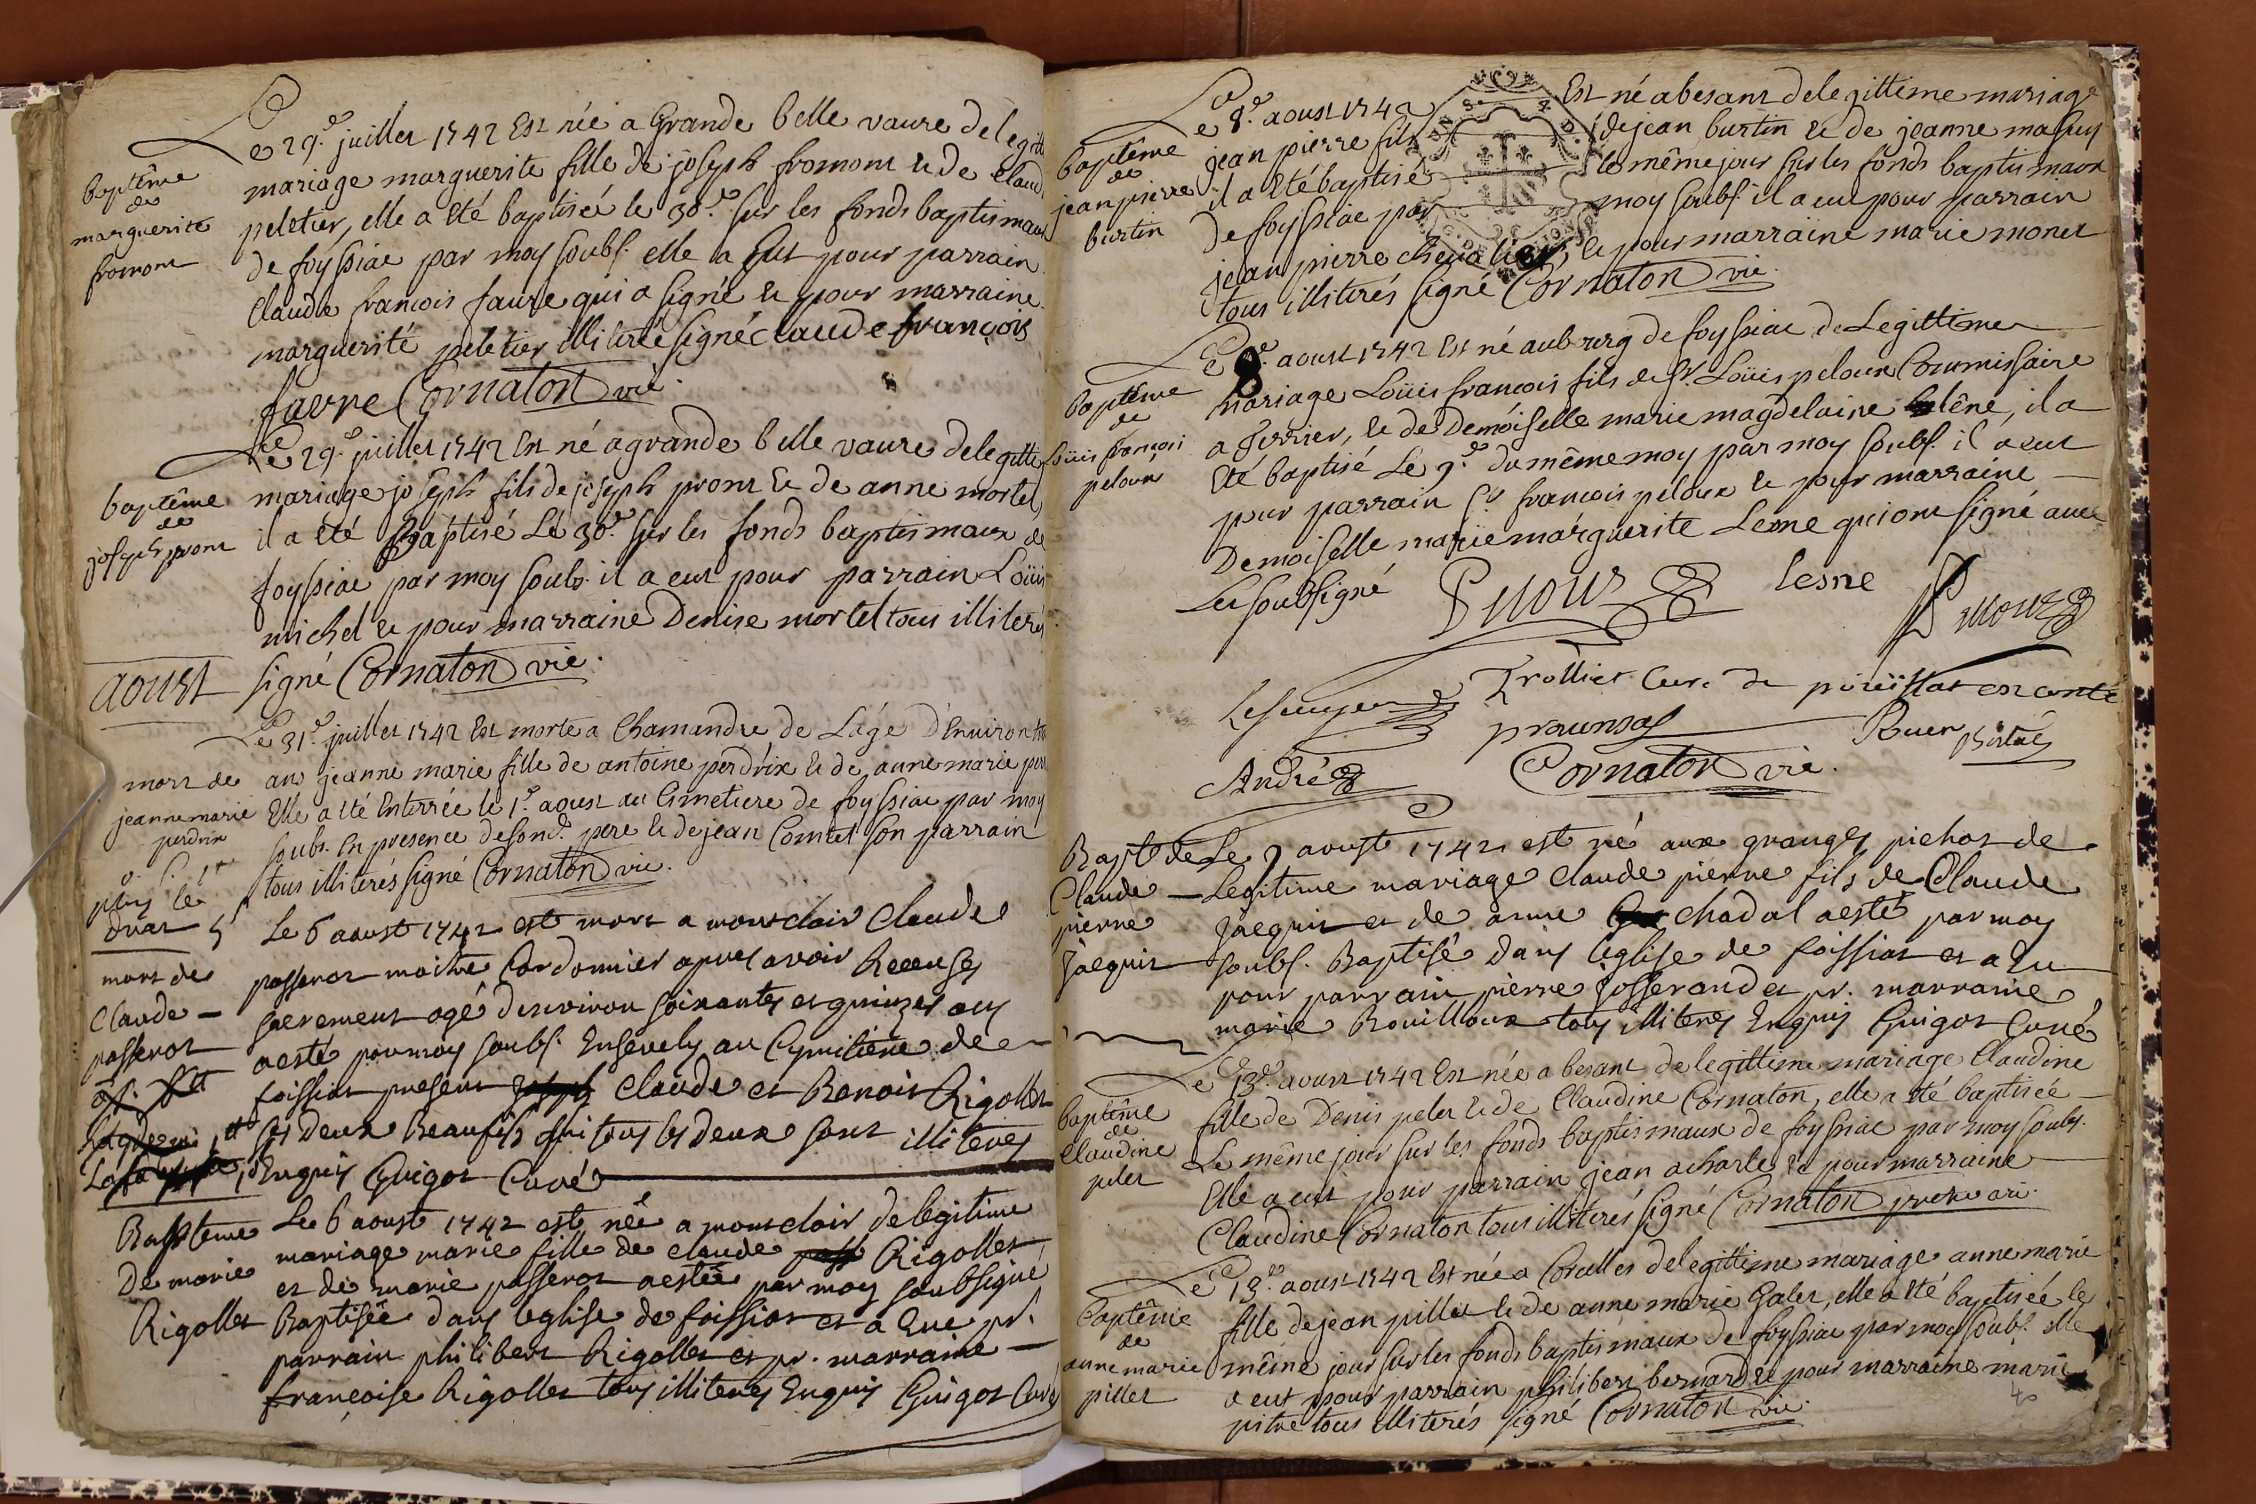 Le 29.e juillet 1742 Est née a Grande belle vaure de legitt
mariage marguerite fille de joseph fromont & de Claud
peletier, elle a été baptisée le 30.e sur les fonds baptismaux
de foyssiac par moy soubs. elle a eut pour parrain
Claude francois faure qui a signé & pour marraine
marguerite peletier illiterée signé claude françois
favre Cornaton vic.
baptême
de
marguerite
fromont
Le 29.e juillet 1742 Est né a grande belle vaure de legitti
mariage joseph fils de joseph pront & de anne mortel
il a été Baptisé Le 30.e sur les fonds baptismaux de
foyssiac par moy soubs. il a eut pour parrain Loüis
michel & pour marraine Denise mortel tous illiterés
signé Cornaton vic.
baptême
de
joseph pront
aoust
Le 31.e juillet 1742 Est morte a Chamandre de Lâge d'Environ
an jeanne marie fille de antoine perdrix & de anne marie
Elle a été Enterrée le 1.er aoust au Cimetiere de foyssiac par moy
soubs. En presence de son d. pere & de jean Comtet son parrain
tous illiterés signé Cornaton vic.
mort de
jeanne marie
perdrix
Le 6 aoust 1742 est mort a montclair Claude
passerot maitre Cordonnier apres avoir Receu ses
sacremens agé d'environ soixantes et quinzes ans
a esté par moy soubs. Ensevely au Cymitiere de
foissiat present Claude et Benoit Rigollet
ses deux Beaufils qui tous les deux sont illiteres
Enquis Guigot Curé
mort de
Claude
passerot
Le 6 aoust 1742 est née a montclair de legitime
mariage marie fille de claude Rigollet
et de marie passerot a estée par moy soubsigné
Baptisée dans leglise de foissiat et a Eue pr.
parrain philibert Rigollet et pr. marraine
françoise Rigollet tous illiteres Enquis Guigot Curé
Bapteme
De marie
Rigollet
Le 8.e aoust 1742 Est né a besant de legittime mariage
jean pierre fils de jean burtin & de jeanne masuy
il a été baptisé le même jour sur les fonds baptismaux
de foyssiac par moy soubs. il a eut pour parrain
jean pierre chevalier, & pour marraine marie monet
tous illiterés signé Cornaton vic.
baptême
de
jean pierre
burtin
Le 8.e aoust 1742 Est né au bourg de foyssiac de Legittime
mariage Loüis francois fils de Sr. Loüis peloux Commissaire
a Terrier, & de Demoiselle marie magdelaine lêne, il a
été baptisé Le 9.e du même moy par moy soubs. il a eut
pour parrain Sr. francois peloux & pour marraine
Demoiselle marie marguerite Lesne qui ont signé avec
Les soubsigné Peloux lesne Peloux
Trolliet Curé de
André Cornaton vic.
baptême
de
Loüis françois
peloux
Le 9 aoust 1742 est né aux granges pichot de
Legitime mariage Claude pierre fils de Claude
Jacquit et de anne chadal a esté par moy
soubs. Baptisé dans leglise de foissiat et a Eu
pour parrain pierre Josserand et pr. marraine
marie Rouilloux tous illiteres Enquis Guigot Curé
Bapt de
Claude
pierre
Jacquit
Le 13.e aoust 1742 Est née a besant de legittime mariage Claudine
fille de Denis pelet & de Claudine Cornaton, elle a été baptisée
Le même jour sur les fonds baptismaux de foyssiac par moy soubs.
Elle a eut pour parrain jean acharle & pour marraine
Claudine Cornaton tous illiterés signé Cornaton
baptême
de
Claudine
pelet
Le 13.e aoust 1742 Est née a Corcelles de legittime mariage anne marie
fille de jean pillet & de anne marie Galet, elle a été baptisée le
même jour sur les fonds baptismaux de foyssiac par moy soubs. elle
a eut pour parrain philibert bernard & pour marraine marie
pitre tous illiterés signé Cornaton vic.
baptême
de
anne marie
pillet